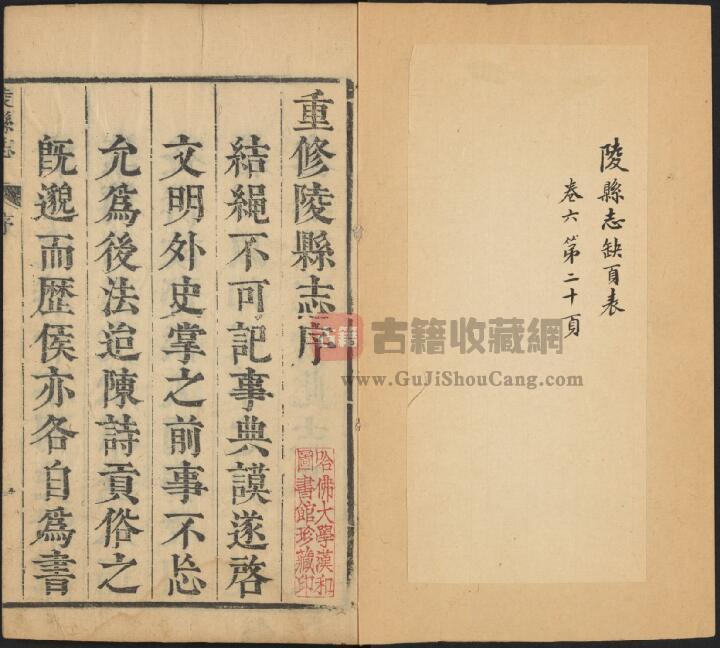 陵縣志缺頁表
卷六第二十頁
重修陵縣志序
結繩不可記事典謨遂啓
文明外史掌之前事不忘
允為後法迨陳詩貢俗之
既邈而歷侯亦各自為書
陵縣志
序
哈佛大學漢和
圖書館珍藏印
古籍
古籍收藏網
www.GuJiShouCang.com